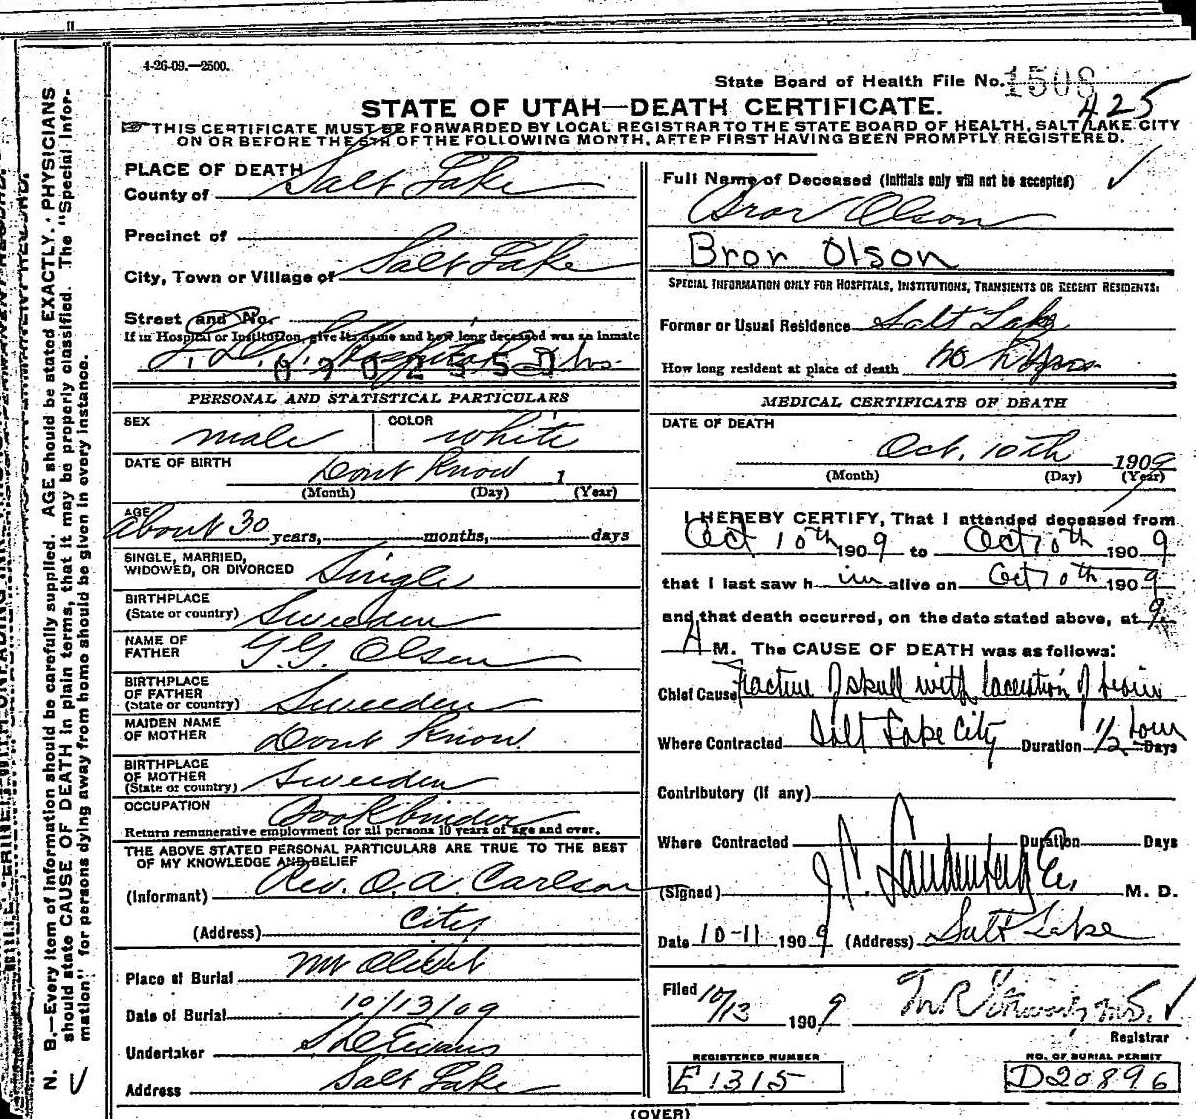 II
4-26-09.—2500.
State Board of Health File No. 1508
425
STATE OF UTAH—DEATH CERTIFICATE.
☞THIS CERTIFICATE MUST BE FORWARDED BY LOCAL REGISTRAR TO THE STATE BOARD OF HEALTH, SALT LAKE CITY
ON OR BEFORE THE 5TH OF THE FOLLOWING MONTH, AFTER FIRST HAVING BEEN PROMPTLY REGISTERED.
PLACE OF DEATH
County of Salt Lake
Precinct of
City, Town or Village of Salt Lake
Street and No.
If in Hospital or Institution, give its name and how long deceased was an inmate
L.D.S. Hospital 2 hrs.
0902550
PERSONAL AND STATISTICAL PARTICULARS
SEX male COLOR white
DATE OF BIRTH Dont Know 1
(Month) (Day) (Year)
AGE
about 30 years, months, days
SINGLE, MARRIED,
WIDOWED, OR DIVORCED Single
BIRTHPLACE
(State or country) Sweeden
NAME OF
FATHER G.G. Olsen
BIRTHPLACE
OF FATHER
(State or country) Sweeden
MAIDEN NAME
OF MOTHER Dont Know.
BIRTHPLACE
OF MOTHER
(State or country) Sweeden
OCCUPATION Bookbinder
Return remunerative employment for all persons 10 years of age and over.
THE ABOVE STATED PERSONAL PARTICULARS ARE TRUE TO THE BEST
OF MY KNOWLEDGE AND BELIEF
(Informant) Rev. O.A. Carlson
(Address) City
Place of Burial Mt Olivet
Date of Burial 10/13/09
Undertaker S.D. Evans
Address Salt Lake
Full Name of Deceased (Initials only will not be accepted)
Bror Olson
Bror Olson
SPECIAL INFORMATION ONLY FOR HOSPITALS, INSTITUTIONS, TRANSIENTS OR RECENT RESIDENTS:
Former or Usual Residence Salt Lake
How long resident at place of death
MEDICAL CERTIFICATE OF DEATH
DATE OF DEATH
Oct. 10th 1909
(Month) (Day) (Year)
I HEREBY CERTIFY, That I attended deceased from
Oct 10th 1909 to Oct 10th 1909
that I last saw him alive on Oct 10th 1909
and that death occurred, on the date stated above, at 9
A M. The CAUSE OF DEATH was as follows:
Chief Cause Fracture of skull with laceration of brain
Where Contracted Salt Lake City Duration 1/2 hour Days
Contributory (if any)
Where Contracted Duration Days
(Signed) M. D.
Date 10-11 1909 (Address) Salt Lake
Filed 10/13 1909
Registrar
REGISTERED NUMBER
E1315
NO. OF BURIAL PERMIT
D20896
(OVER)
N. B.—Every item of Information should be carefully supplied. AGE should be stated EXACTLY. PHYSICIANS
should state CAUSE OF DEATH in plain terms, that it may be properly classified. The "Special Infor-
mation" for persons dying away from home should be given in every instance.